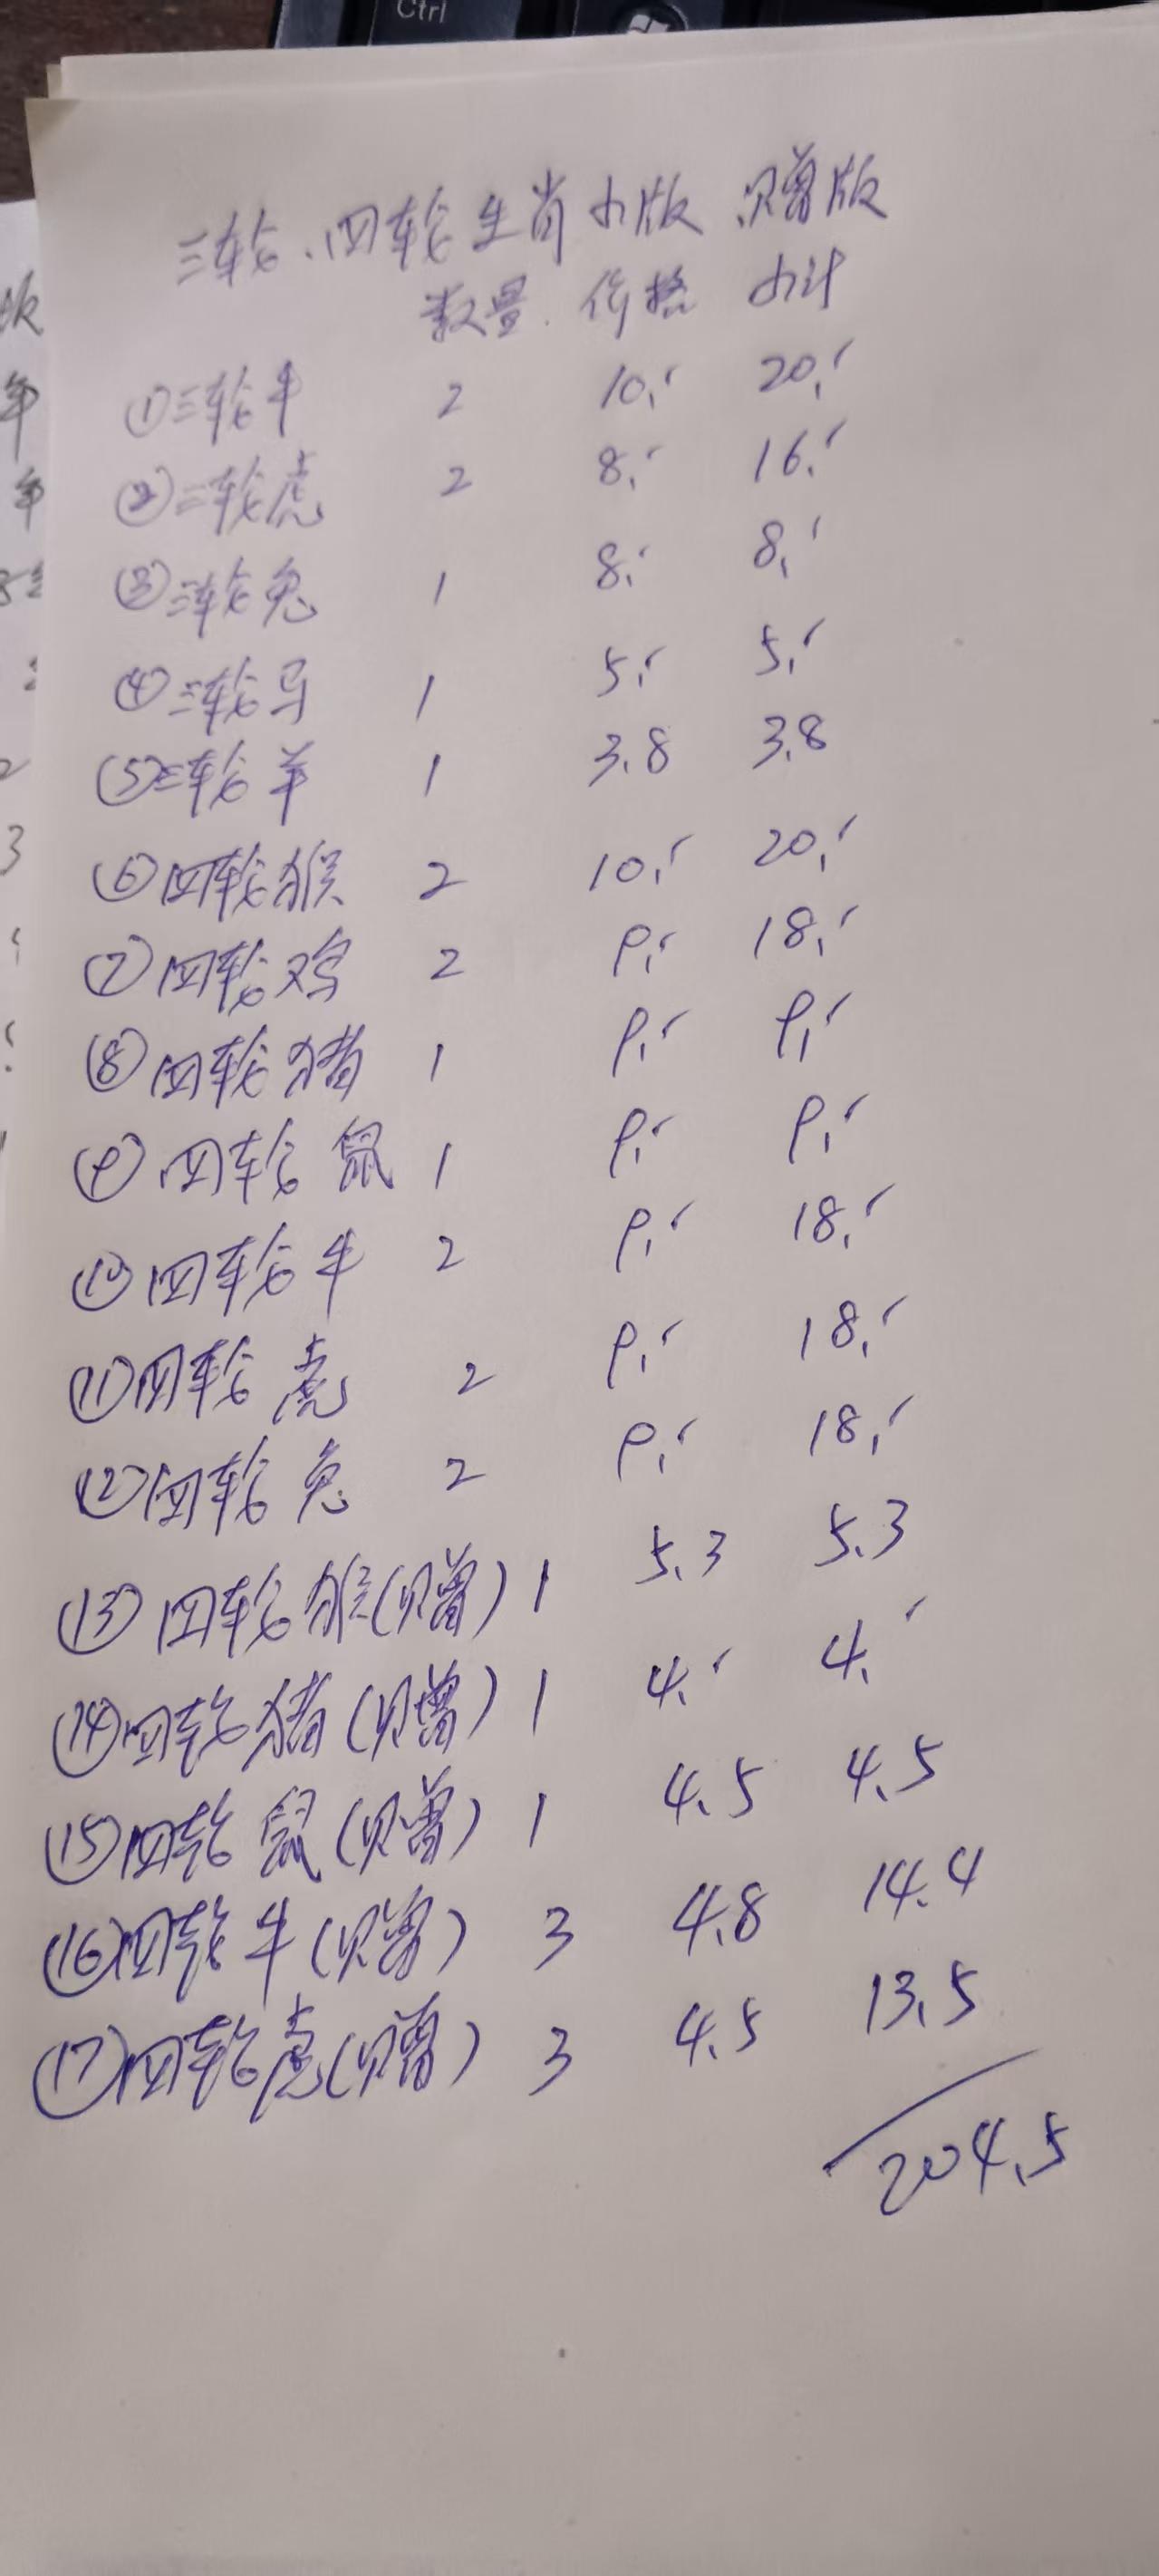 Ctrl
三轮、四轮生肖小版 赠版
数量 价格 小计
①三轮牛 2 10.- 20.-
②三轮虎 2 8.- 16.-
③三轮兔 1 8.- 8.-
④三轮马 1 5.- 5.-
⑤三轮羊 1 3.8 3.8
⑥四轮猴 2 10.- 20.-
⑦四轮鸡 2 9.- 18.-
⑧四轮猪 1 9.- 9.-
⑨四轮鼠 1 9.- 9.-
⑩四轮牛 2 9.- 18.-
⑪四轮虎 2 9.- 18.-
⑫四轮兔 2 9.- 18.-
⑬四轮猴(赠) 1 5.3 5.3
⑭四轮猪(赠) 1 4.- 4.-
⑮四轮鼠(赠) 1 4.5 4.5
⑯四轮牛(赠) 3 4.8 14.4
⑰四轮虎(赠) 3 4.5 13.5
204.5